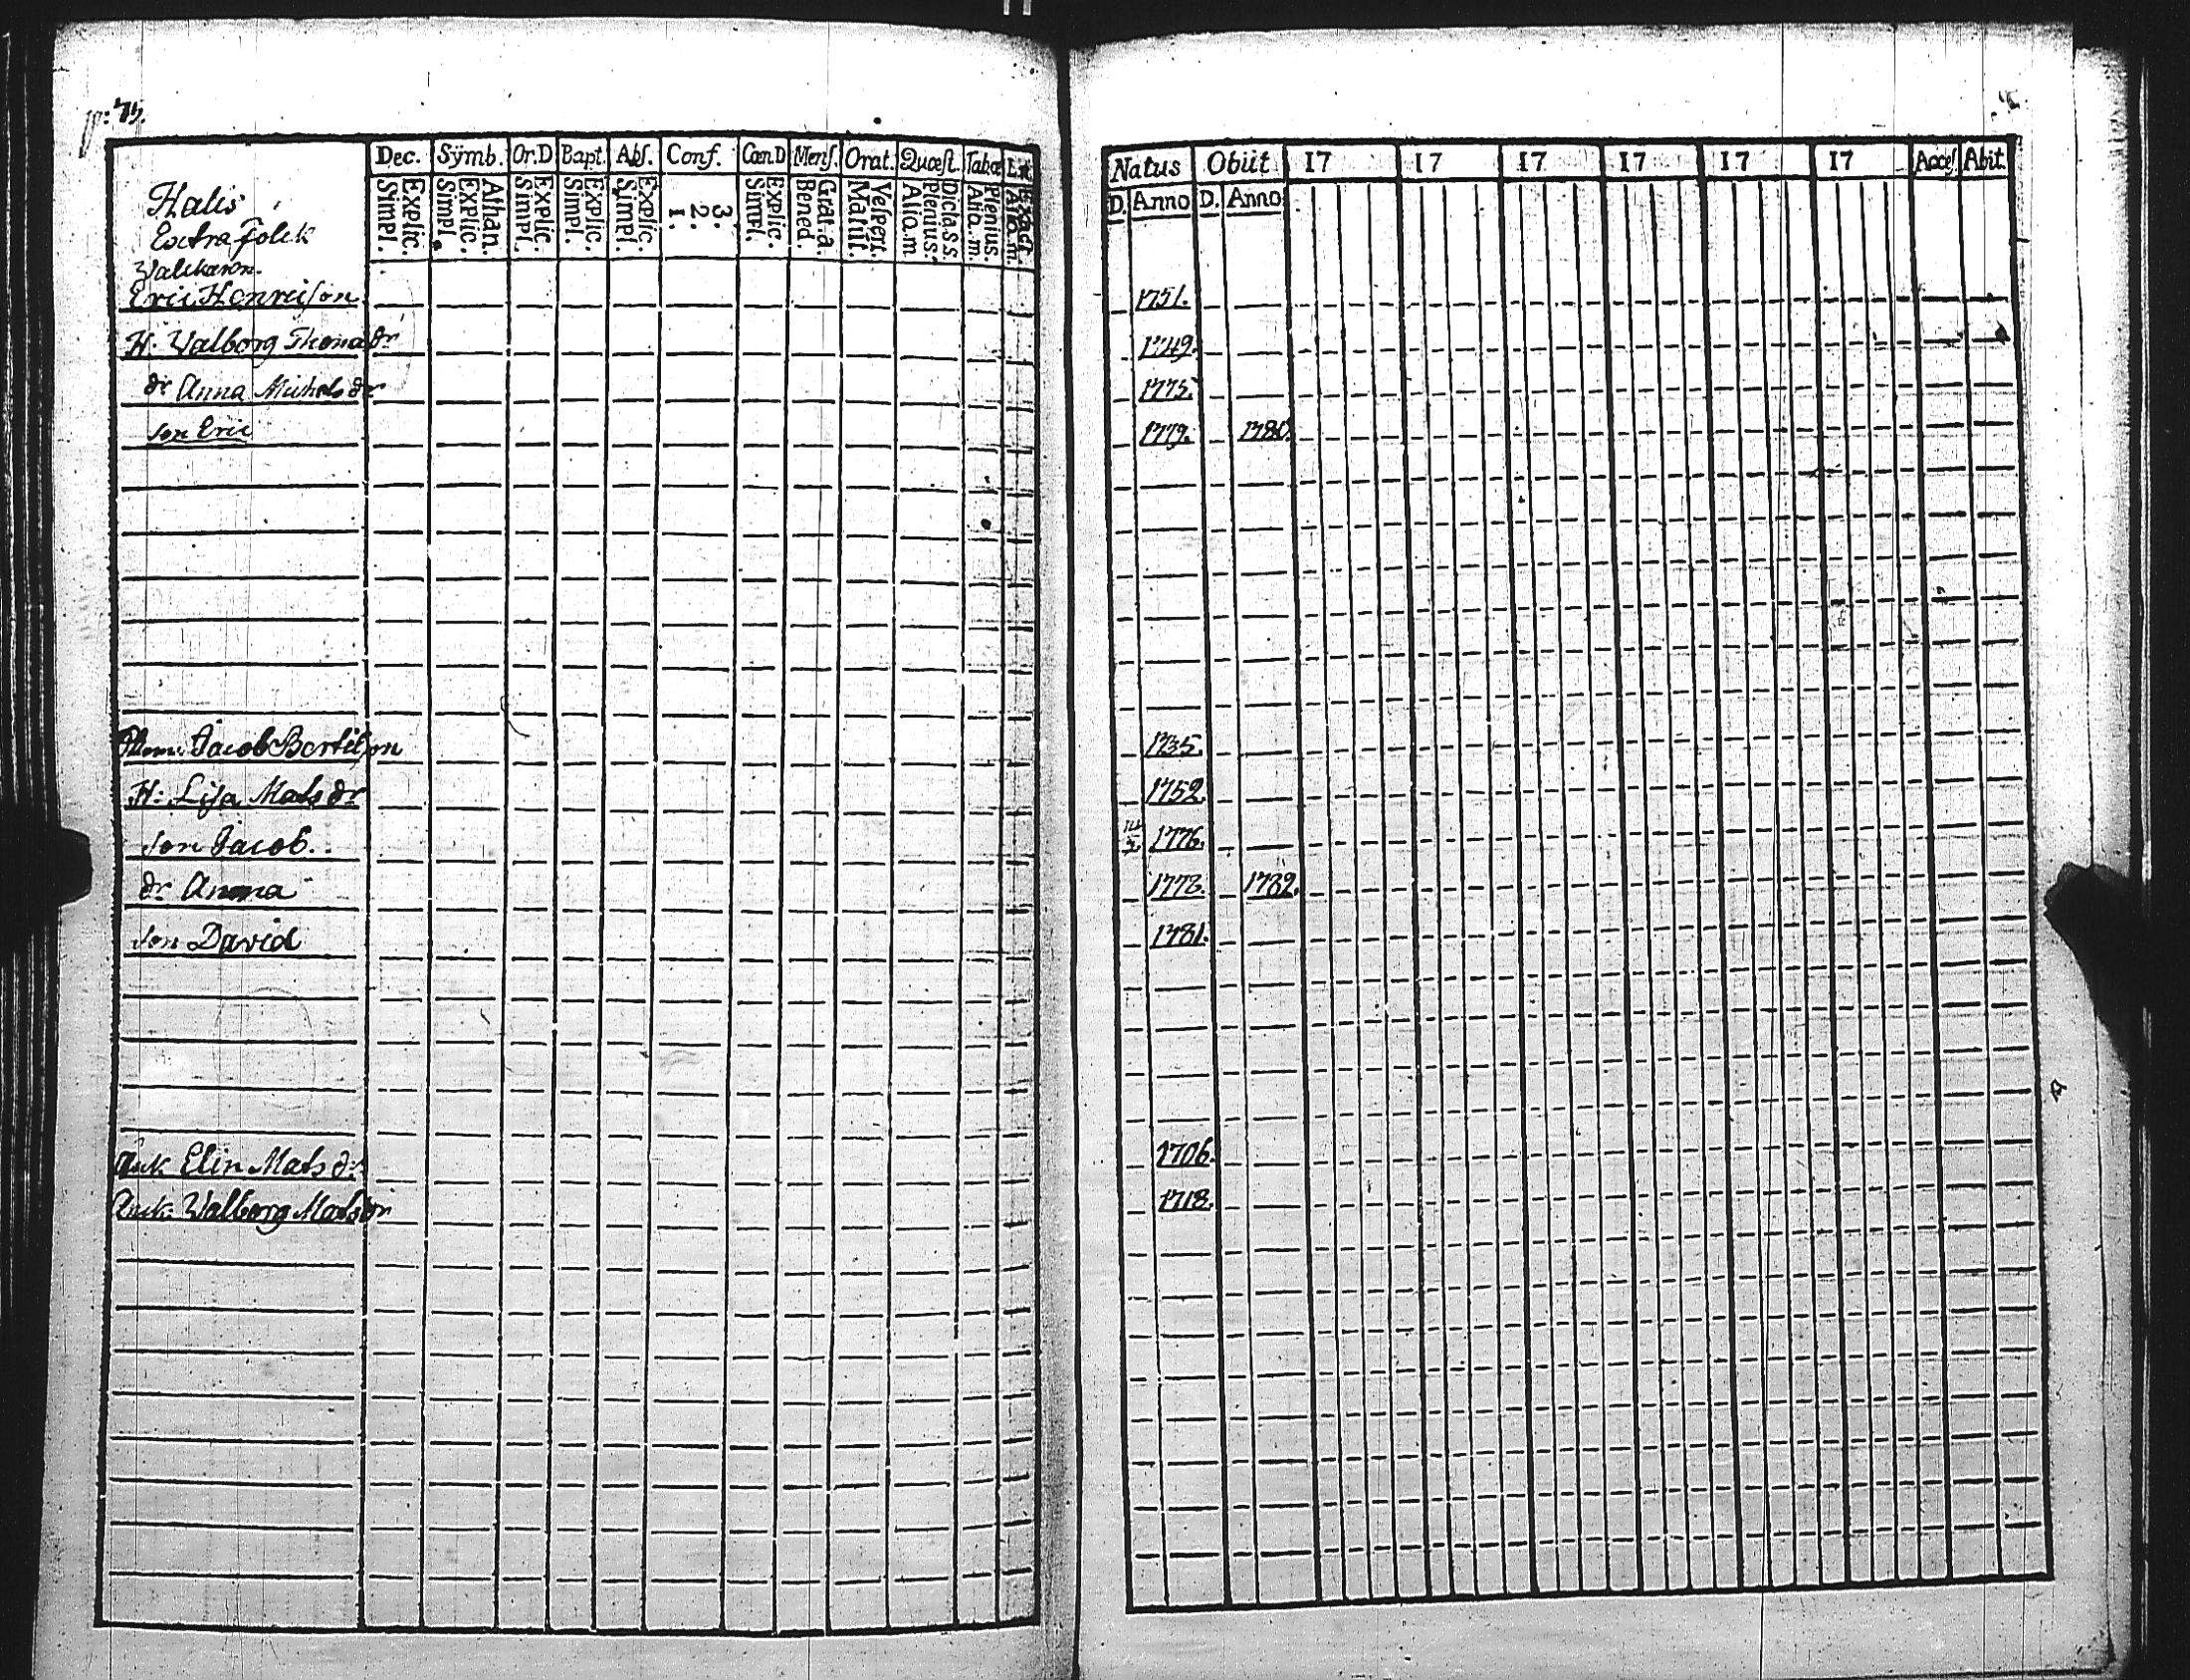 p: 75.
Dec. Sÿmb. Or.D Bapt. Abs. Conf. Cœn.D Mens. Orat. Quæst. Tabæ
Explic. Simpl. Athan. Explic. Simpl. Explic. Simpl. Explic. Simpl. Explic. Simpl. 3. 2. 1. Explic. Simpl. Grat.a. Bened. Vespert. Matut. Dicta S.S. Plenius. Aliq.m Plenius. Aliq.m. Exact Aliq.m.
Halis
Extra folck
Eric Henricson
H. Valborg Thomædr
dr Anna Michelsdr
son Eric
Jacob Bertilson
H: Lisa Matsdr
son Jacob.
dr Anna
son David
Enk Elin Matsdr
Enk: Walborg Matsdr
Natus Obiit 17 17 17 17 17 17 Acces Abit.
D. Anno D. Anno
1751.
1749.
1775.
1779. 1780.
1735.
1752.
1776.
1778. 1782.
1781.
1706.
1718.